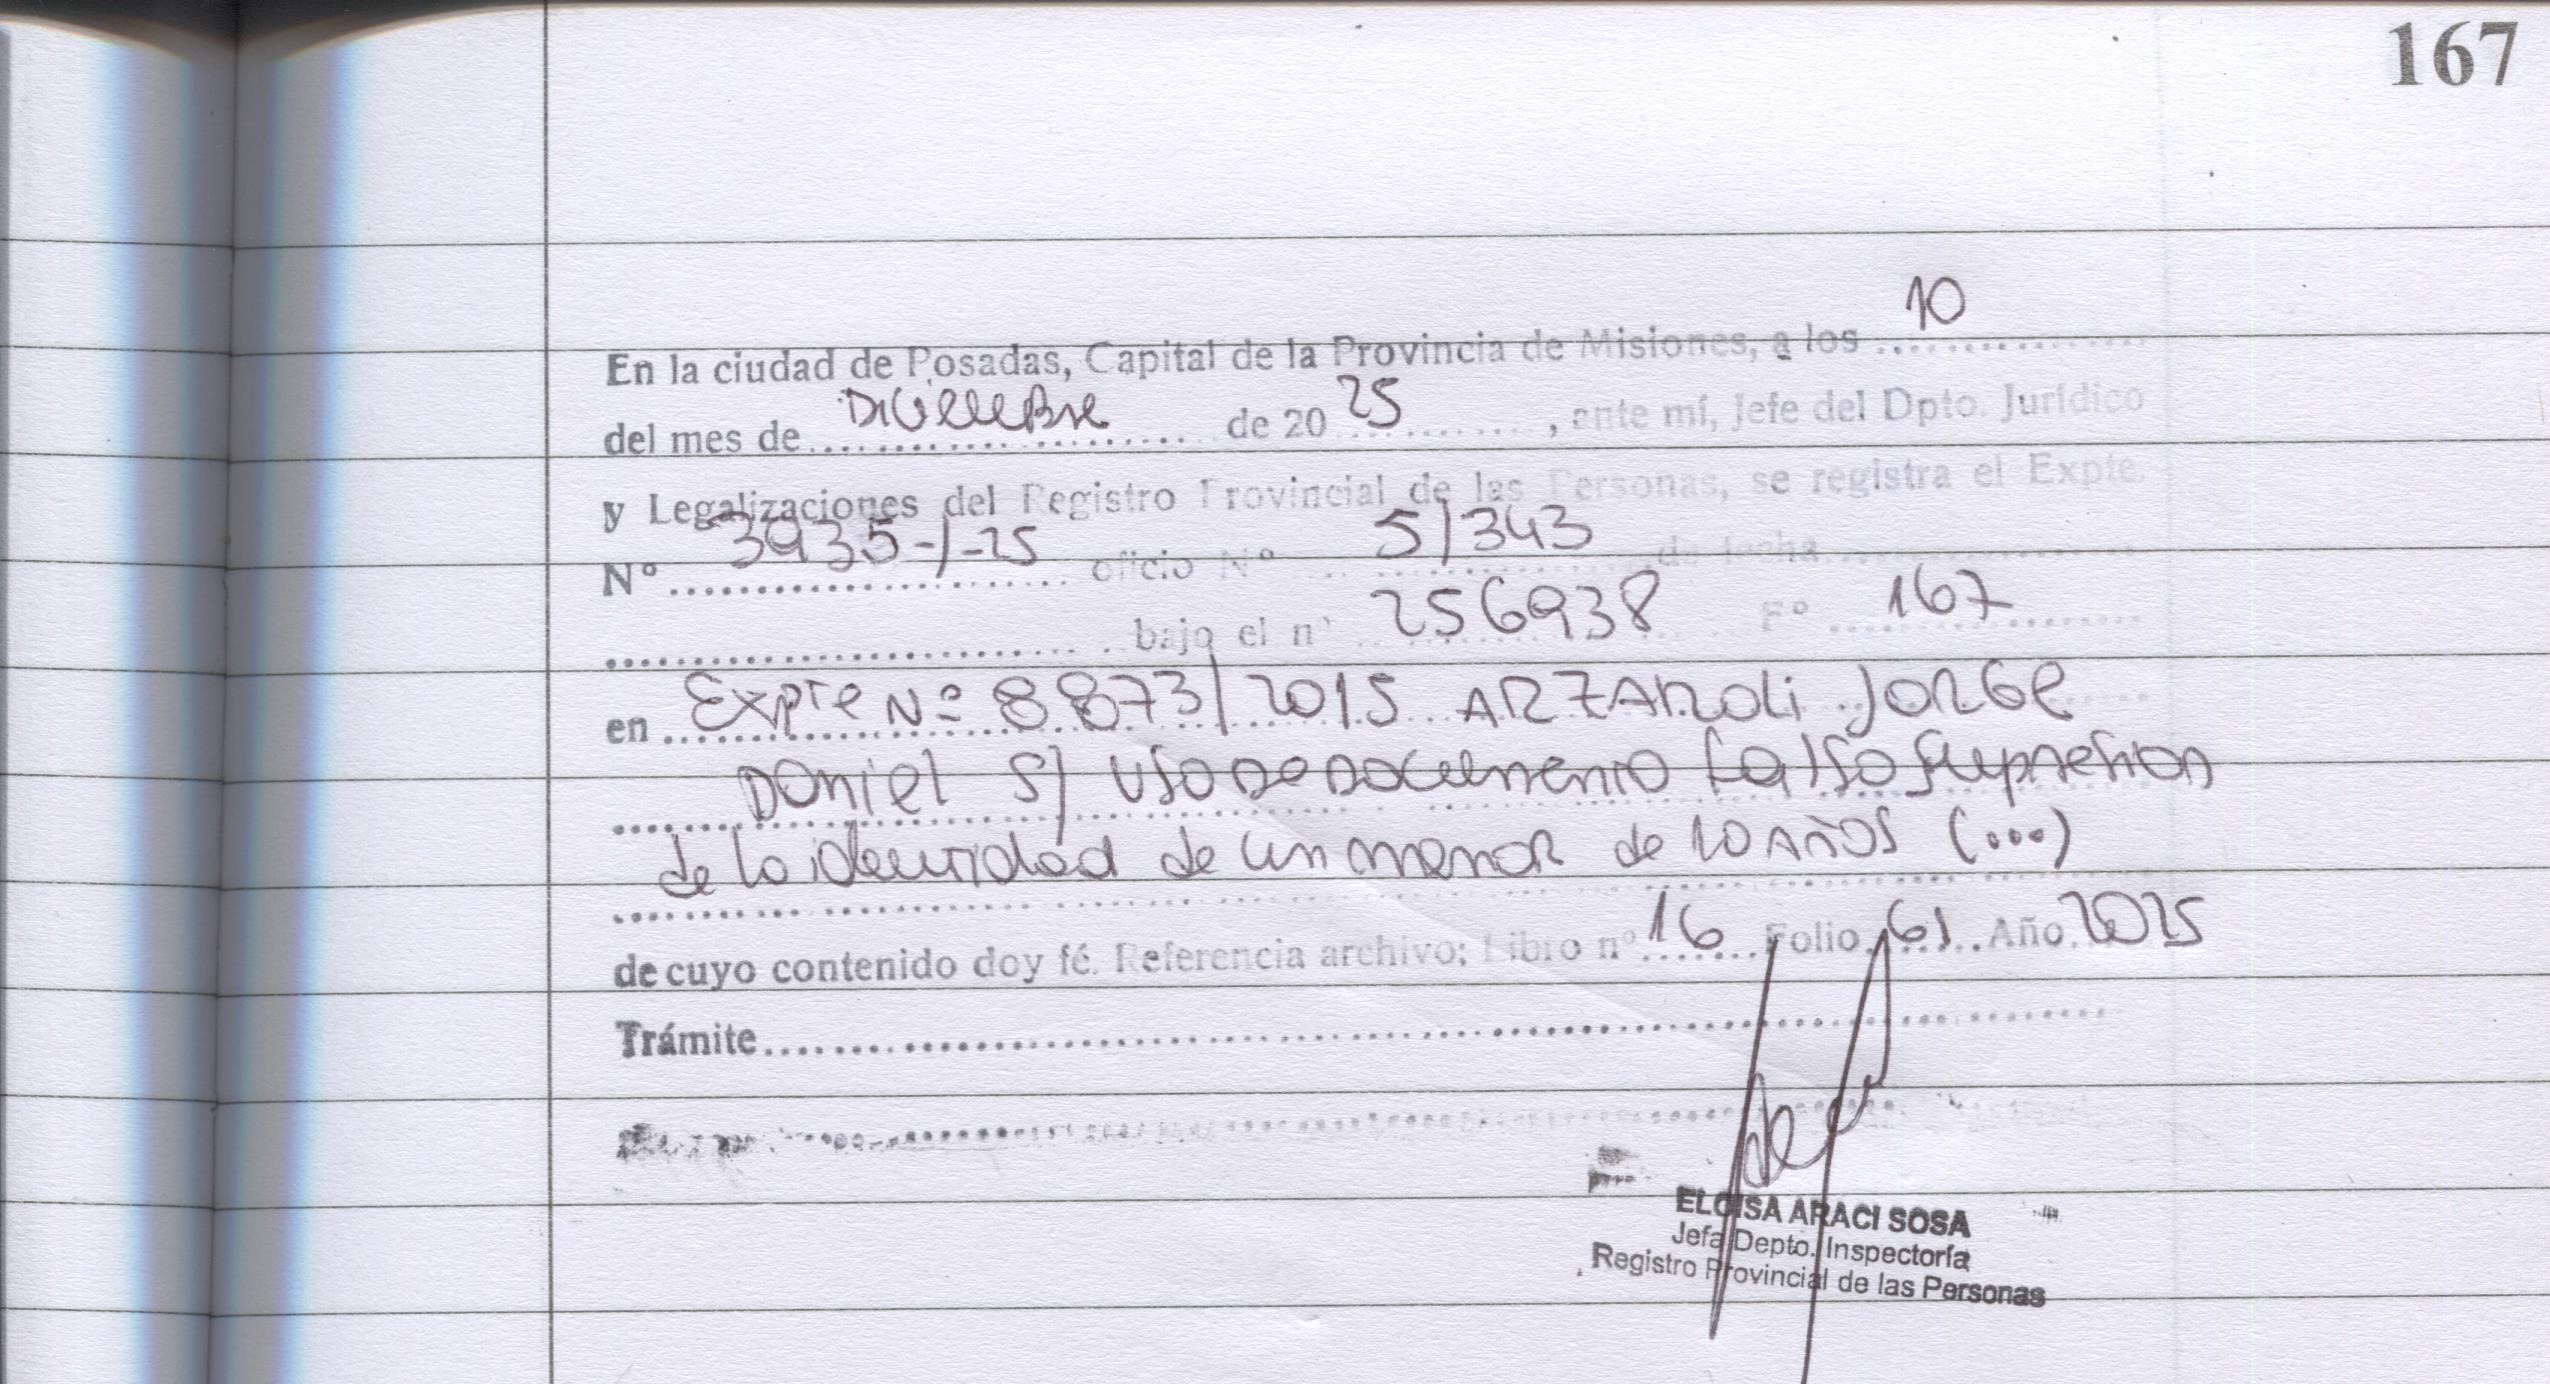 167
En la ciudad de Posadas, Capital de la Provincia de Misiones, a los 10
del mes de Diciembre de 20 25, ante mí, Jefe del Dpto. Jurídico
y Legalizaciones del Registro Provincial de las Personas, se registra el Expte.
Nº 3935-/-25 oficio Nº 5/343 de fecha
bajo el nº 256938 Fº 167
en Expte Nº 8873/2015 ARZAROLi JORGE
DANiel S/ USO De DOCUMENTO falso Supresion
de la identidad de un menor de 10 AÑOS (...)
de cuyo contenido doy fé. Referencia archivo: Libro nº 16 Folio 61 Año 2025
Trámite
ELOISA ARACI SOSA
Jefa Depto. Inspectoría
Registro Provincial de las Personas